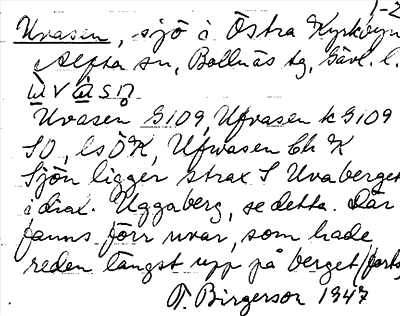 1-2
Uvasen, sjö i Östra Kyrkbyn
Alfta sn, Bollnäs tg, Gävl. l.
Uvasen G109, Ufvasen k G109
SO, ls ÖK, Ufwasen Ch K
Sjön ligger strax S Uvaberget
i drax. Uggaberg, se detta. Där
fanns förr uvar, som hade
reden längst upp på berget (forts.
T. Birgerson 1947